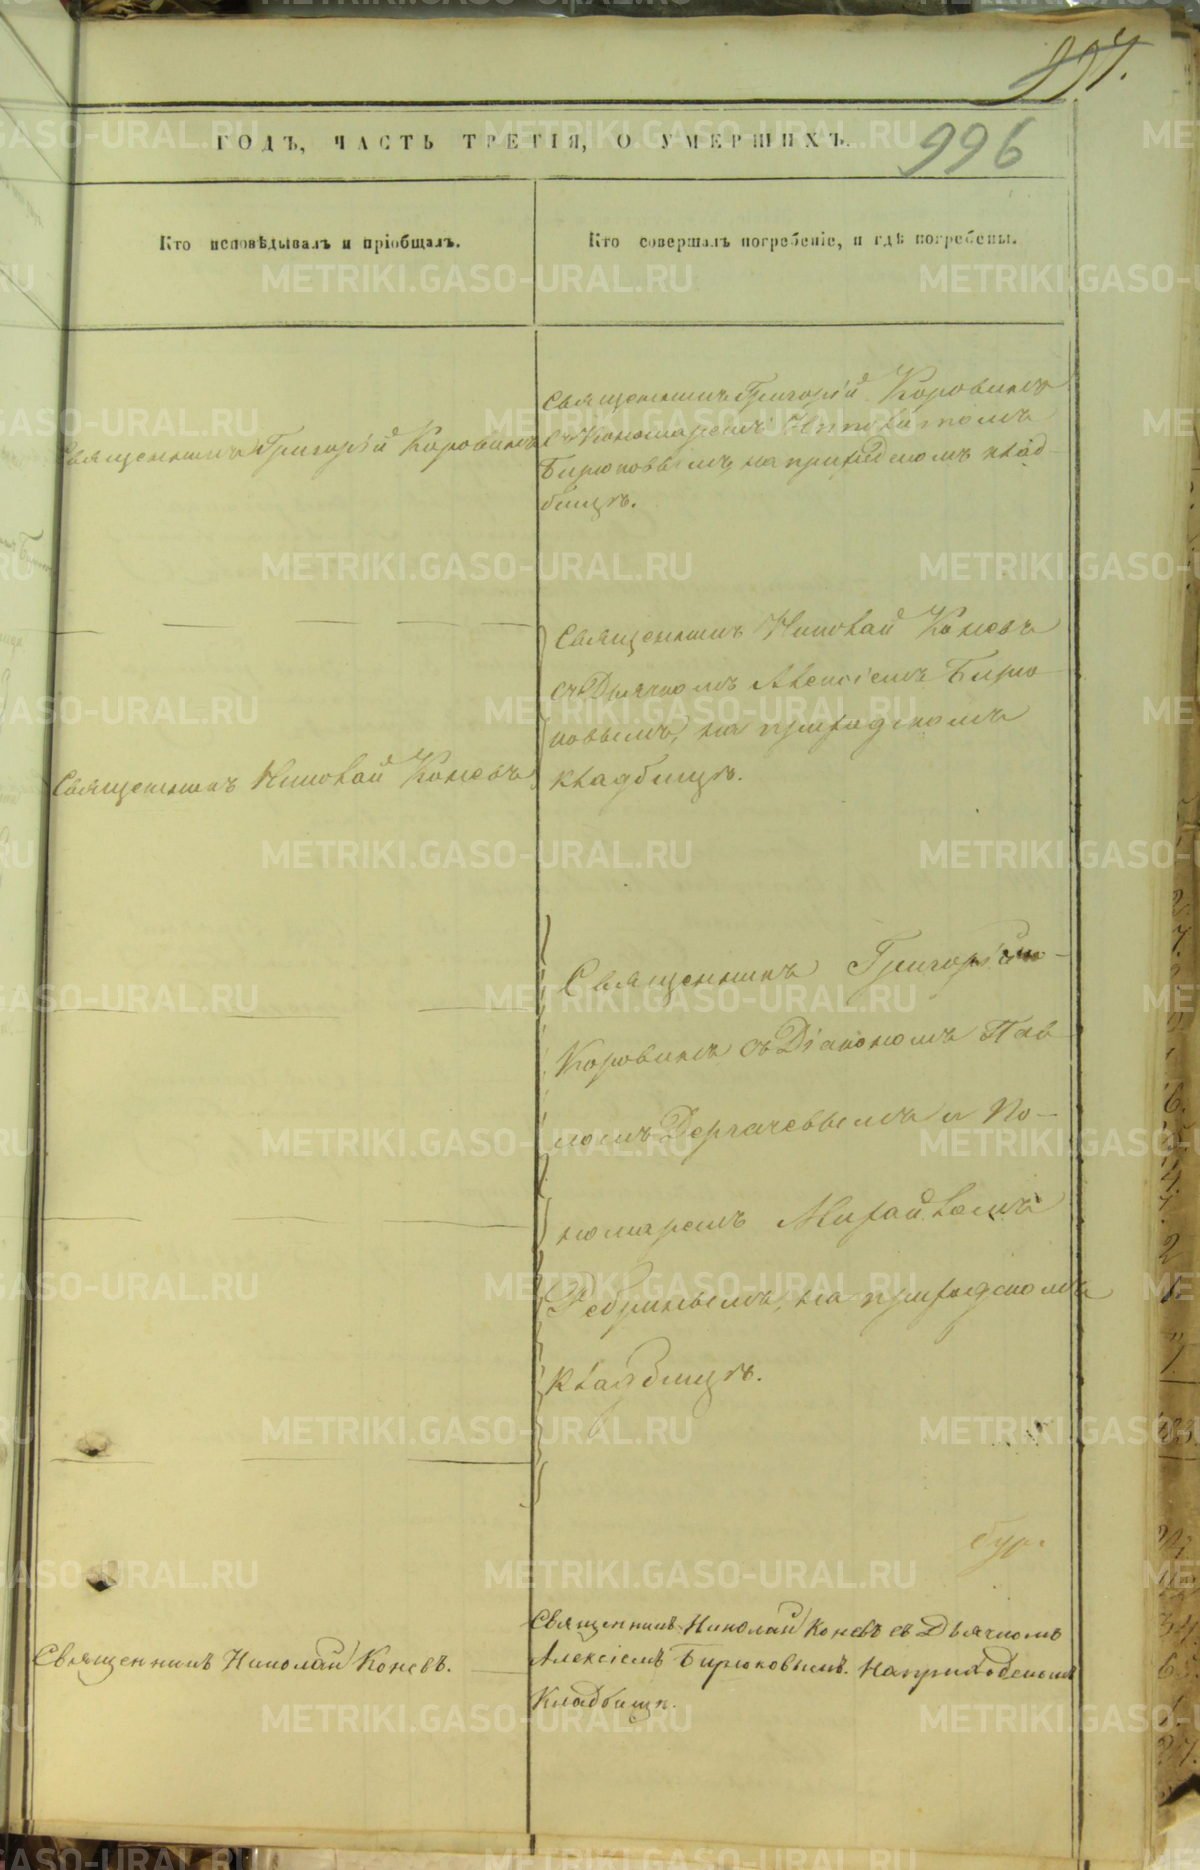 997.
ГОДЪ, ЧАСТЬ ТРЕТІЯ, О УМЕРШИХЪ.
996
Кто исповѣдывалъ и пріобщалъ.
Кто совершалъ погребеніе, и гдѣ погребены.
Священникъ Григорій Коровинъ
Священникъ Григорій Коровинъ
съ Пономаремъ Ипполитомъ
Бирюковымъ, на приходскомъ клад-
бищѣ.
Священникъ Николай Коневъ
Священникъ Николай Коневъ
съ Дьячкомъ Алексіемъ Бирю-
ковымъ, на приходскомъ
кладбищѣ.
Священникъ Григорій
Коровинъ съ Діакономъ Пав
ломъ Дергачевымъ и По-
номаремъ Михайломъ
Ребринымъ, на приходскомъ
кладбищѣ.
Священникъ Николай Коневъ.
Священникъ Николай Коневъ съ Дьячкомъ
Алексіемъ Бирюковымъ. На приходскомъ
Кладбищѣ.
METRIKI.GASO-URAL.RU